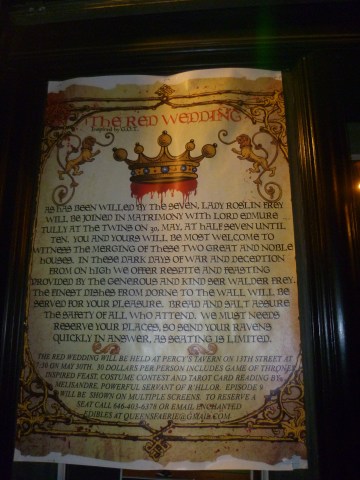 THE RED WEDDING
Inspired by G.O.T.
AS HAS BEEN WILLED BY THE SEVEN, LADY ROSLIN FREY
WILL BE JOINED IN MATRIMONY WITH LORD EDMURE
TULLY AT THE TWINS ON 30, MAY, AT HALF SEVEN UNTIL
TEN. YOU AND YOURS WILL BE MOST WELCOME TO
WITNESS THE MERGING OF THESE TWO GREAT AND NOBLE
HOUSES. IN THESE DARK DAYS OF WAR AND DECEPTION
FROM ON HIGH WE OFFER RESPITE AND FEASTING
PROVIDED BY THE GENEROUS AND KIND SER WALDER FREY.
THE FINEST DISHES FROM DORNE TO THE WALL WILL BE
SERVED FOR YOUR PLEASURE. BREAD AND SALT ASSURE
THE SAFETY OF ALL WHO ATTEND. WE MUST NEEDS
RESERVE YOUR PLACES, SO SEND YOUR RAVENS
QUICKLY IN ANSWER, AS SEATING IS LIMITED.
THE RED WEDDING WILL BE HELD AT PERCY'S TAVERN ON 13TH STREET AT
7:30 ON MAY 30TH. 30 DOLLARS PER PERSON INCLUDES GAME OF THRONES
INSPIRED FEAST, COSTUME CONTEST AND TAROT CARD READING BY
MELISANDRE, POWERFUL SERVANT OF R'HLLOR. EPISODE 8
WILL BE SHOWN ON MULTIPLE SCREENS. TO RESERVE A
SEAT CALL 646-403-6378 OR EMAIL ENCHANTED
EDIBLES AT QUEENSFAERIE@GMAIL.COM